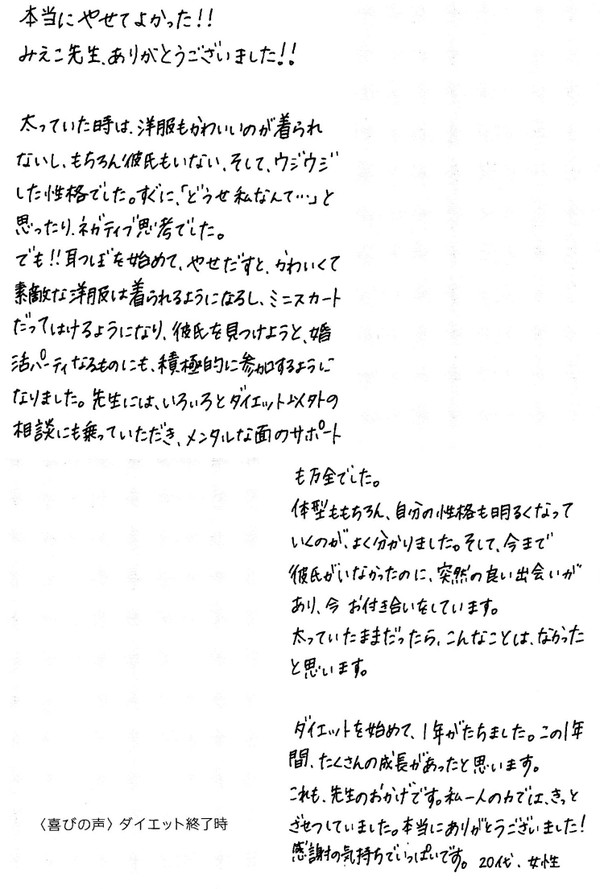 本当にやせてよかった!!
みえこ先生、ありがとうございました!!
太っていた時は、洋服もかわいいのが着られ
ないし、もちろん彼氏もいない、そして、ウジウジ
した性格でした。すぐに、「どうせ私なんて…」と
思ったり、ネガティブ思考でした。
でも!!耳つぼを始めて、やせだすと、かわいくて
素敵な洋服は着られるようになるし、ミニスカート
だってはけるようになり、彼氏を見つけようと、婚
活パーティなるものにも、積極的に参加するように
なりました。先生には、いろいろとダイエット以外の
相談にも乗っていただき、メンタルな面のサポート
も万全でした。
体型ももちろん、自分の性格も明るくなって
いくのが、よく分かりました。そして、今まで
彼氏がいなかったのに、突然の良い出会いが
あり、今 お付き合いをしています。
太っていたままだったら、こんなことは、なかった
と思います。
ダイエットを始めて、1年がたちました。この1年
間、たくさんの成長があったと思います。
これも、先生のおかげです。私一人の力では、きっと
ざせつしていました。本当にありがとうございました!
感謝の気持ちでいっぱいです。 20代、女性
〈喜びの声〉ダイエット終了時